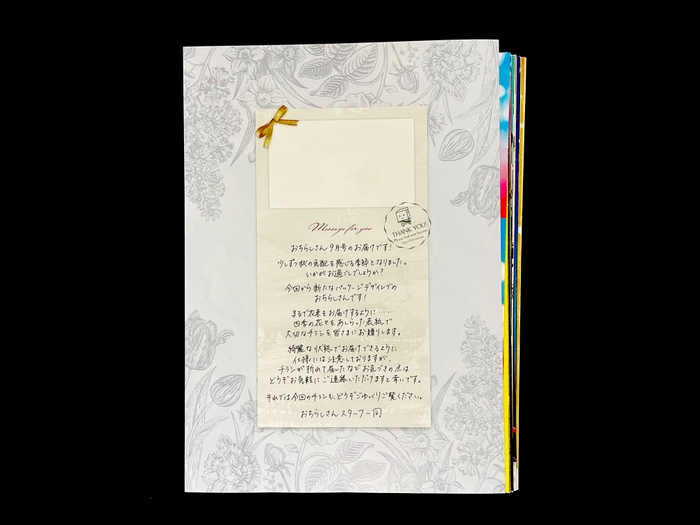 Message for you
THANK YOU!
おちらしさん9月号のお届けです!
少しずつ秋の気配を感じる季節となりました。
いかがお過ごしでしょうか?
今回から新たなパッケージデザインでの
おちらしさんです!
まるで花束をお届けするように……
四季の花々をあしらった表紙で
大切なチラシを皆さまにお贈りします。
綺麗な状態でお届けできるように
仕様には注意しておりますが、
チラシが折れて届いたなどお気づきの点は
どうぞお気軽にご連絡いただけますと幸いです。
それでは今回のチラシも、どうぞごゆっくりご覧ください。
おちらしさんスタッフ一同